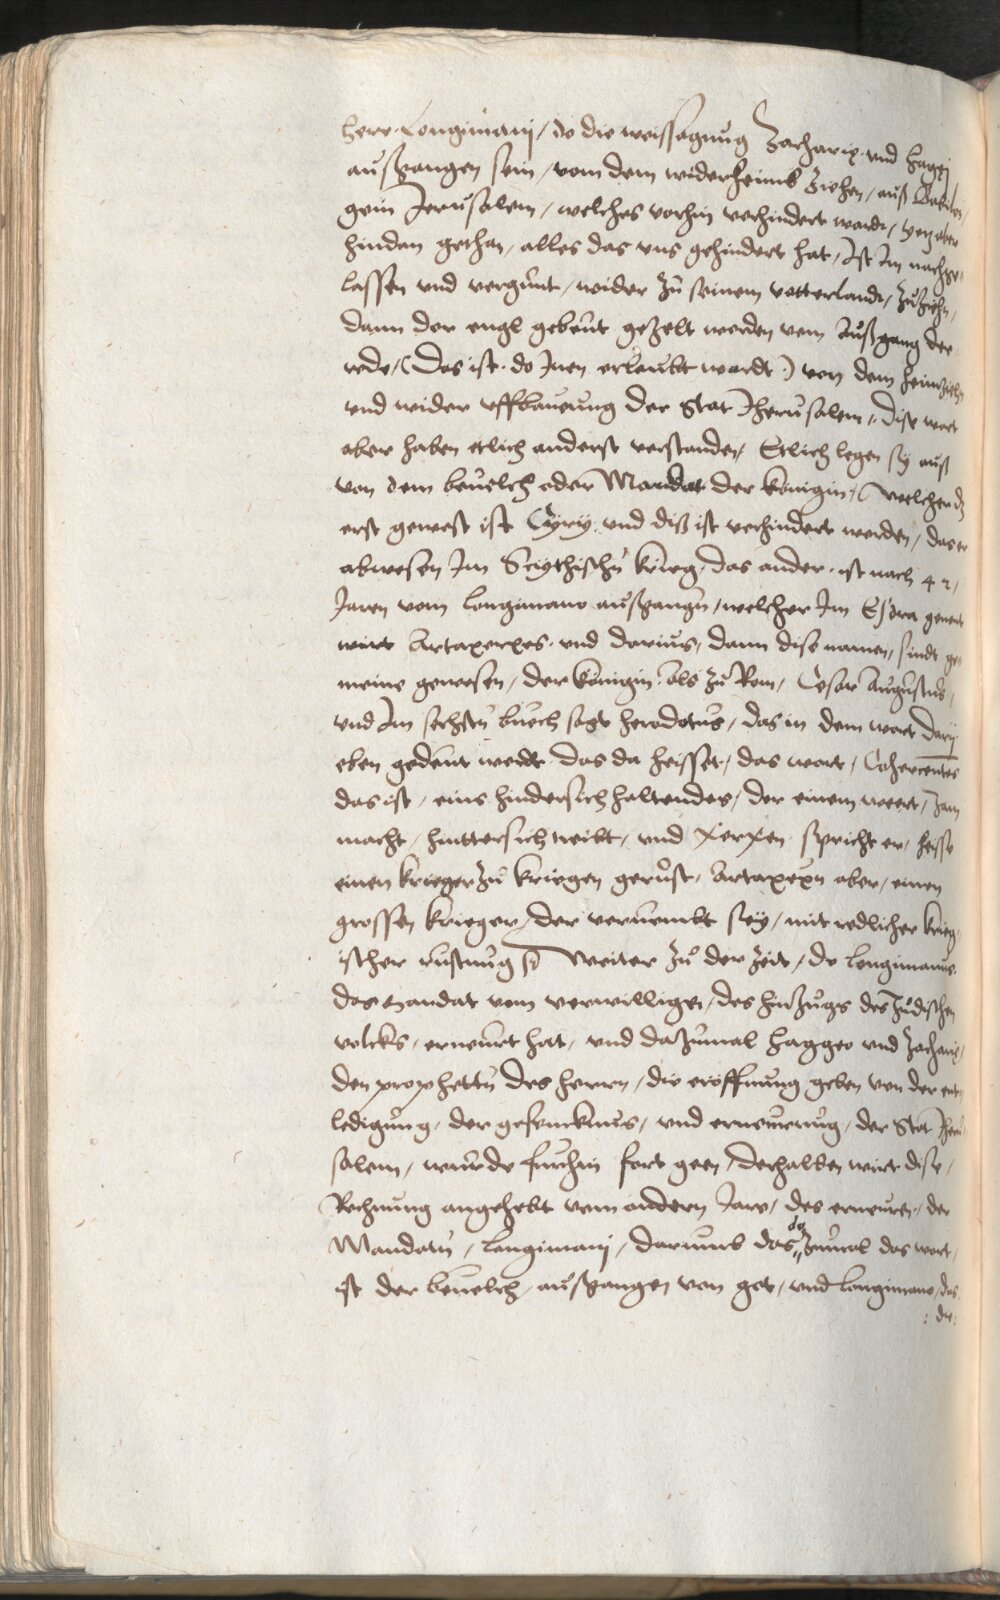 herr Longimanj / do die weissagnug Zacharie vnd Haggj
außgangen sein / vom dem widerheimb ziehen / auß Babilon /
gein Jerusalem / welches vorhin verhindert wardt / yetz aber
hindan gethan / alles das vns gehindert hat / Ist Im nachge¬
lassen vnd vergunt / wider zu seinem vatterlandt / zuziehn /
dann der engl gebeut gezelt werden vom Außgang der
rede / (Das ist do Inen erlaubt wardt) von dem heimziehn
vnd wider vffbauung der Stat Jherusalem / dise wort
aber haben etlich anderst verstanden / Etlich legen sy auß
von dem beuelch oder Mandat der konigin / (welcher dz
erst gewest ist Cyrj vnd diß ist verhindert worden / das er
abwesen Im Scythischn krieg / das ander ist nach 42 /
Jaren vom longimano außgangn / welcher Im Esdra genent
wirt Artaxerxes vnd darius / dann dise namen / sindt ge¬
meine gewesen / der konigin Als zu Rom / Cesar Augustus /
vnd Im sechstn buech sagt herodotus / das in dem wort Darij
eben gedeut werdt das da heisset / das wort / Cohercentes
das ist / eins hindersich haltendes / der einem weert / Zam
macht / hinttersich treibt / vnd Xerxen spricht er / heisse
einen krieger zu kriegen gerust / Artaxexn aber / einen
grossen krieger / der veruembt sey / mit redlicher krieg
ischer rustnug Weiter zu der zeit / do longimanus
das mandat vom verwilligen / des hinzugs des Judischen
volcks / erneurt hat / vnd dazumal Haggeo vnd Zacharie /
den prophettn des herrn / die eroffnung geben von der ent¬
ledigung / der gefencknus / vnd ernewerug / der Stat Jheru¬
salem / wurde furhin fort geen / derhalben wirt dise /
Rechnung angehebt vom andern Jare / des erneuren / der
Mandatn / longimanj / darumb das da zumal das wort /
ist der beuelch / außgangen von got / vnd longimano / das
: die :